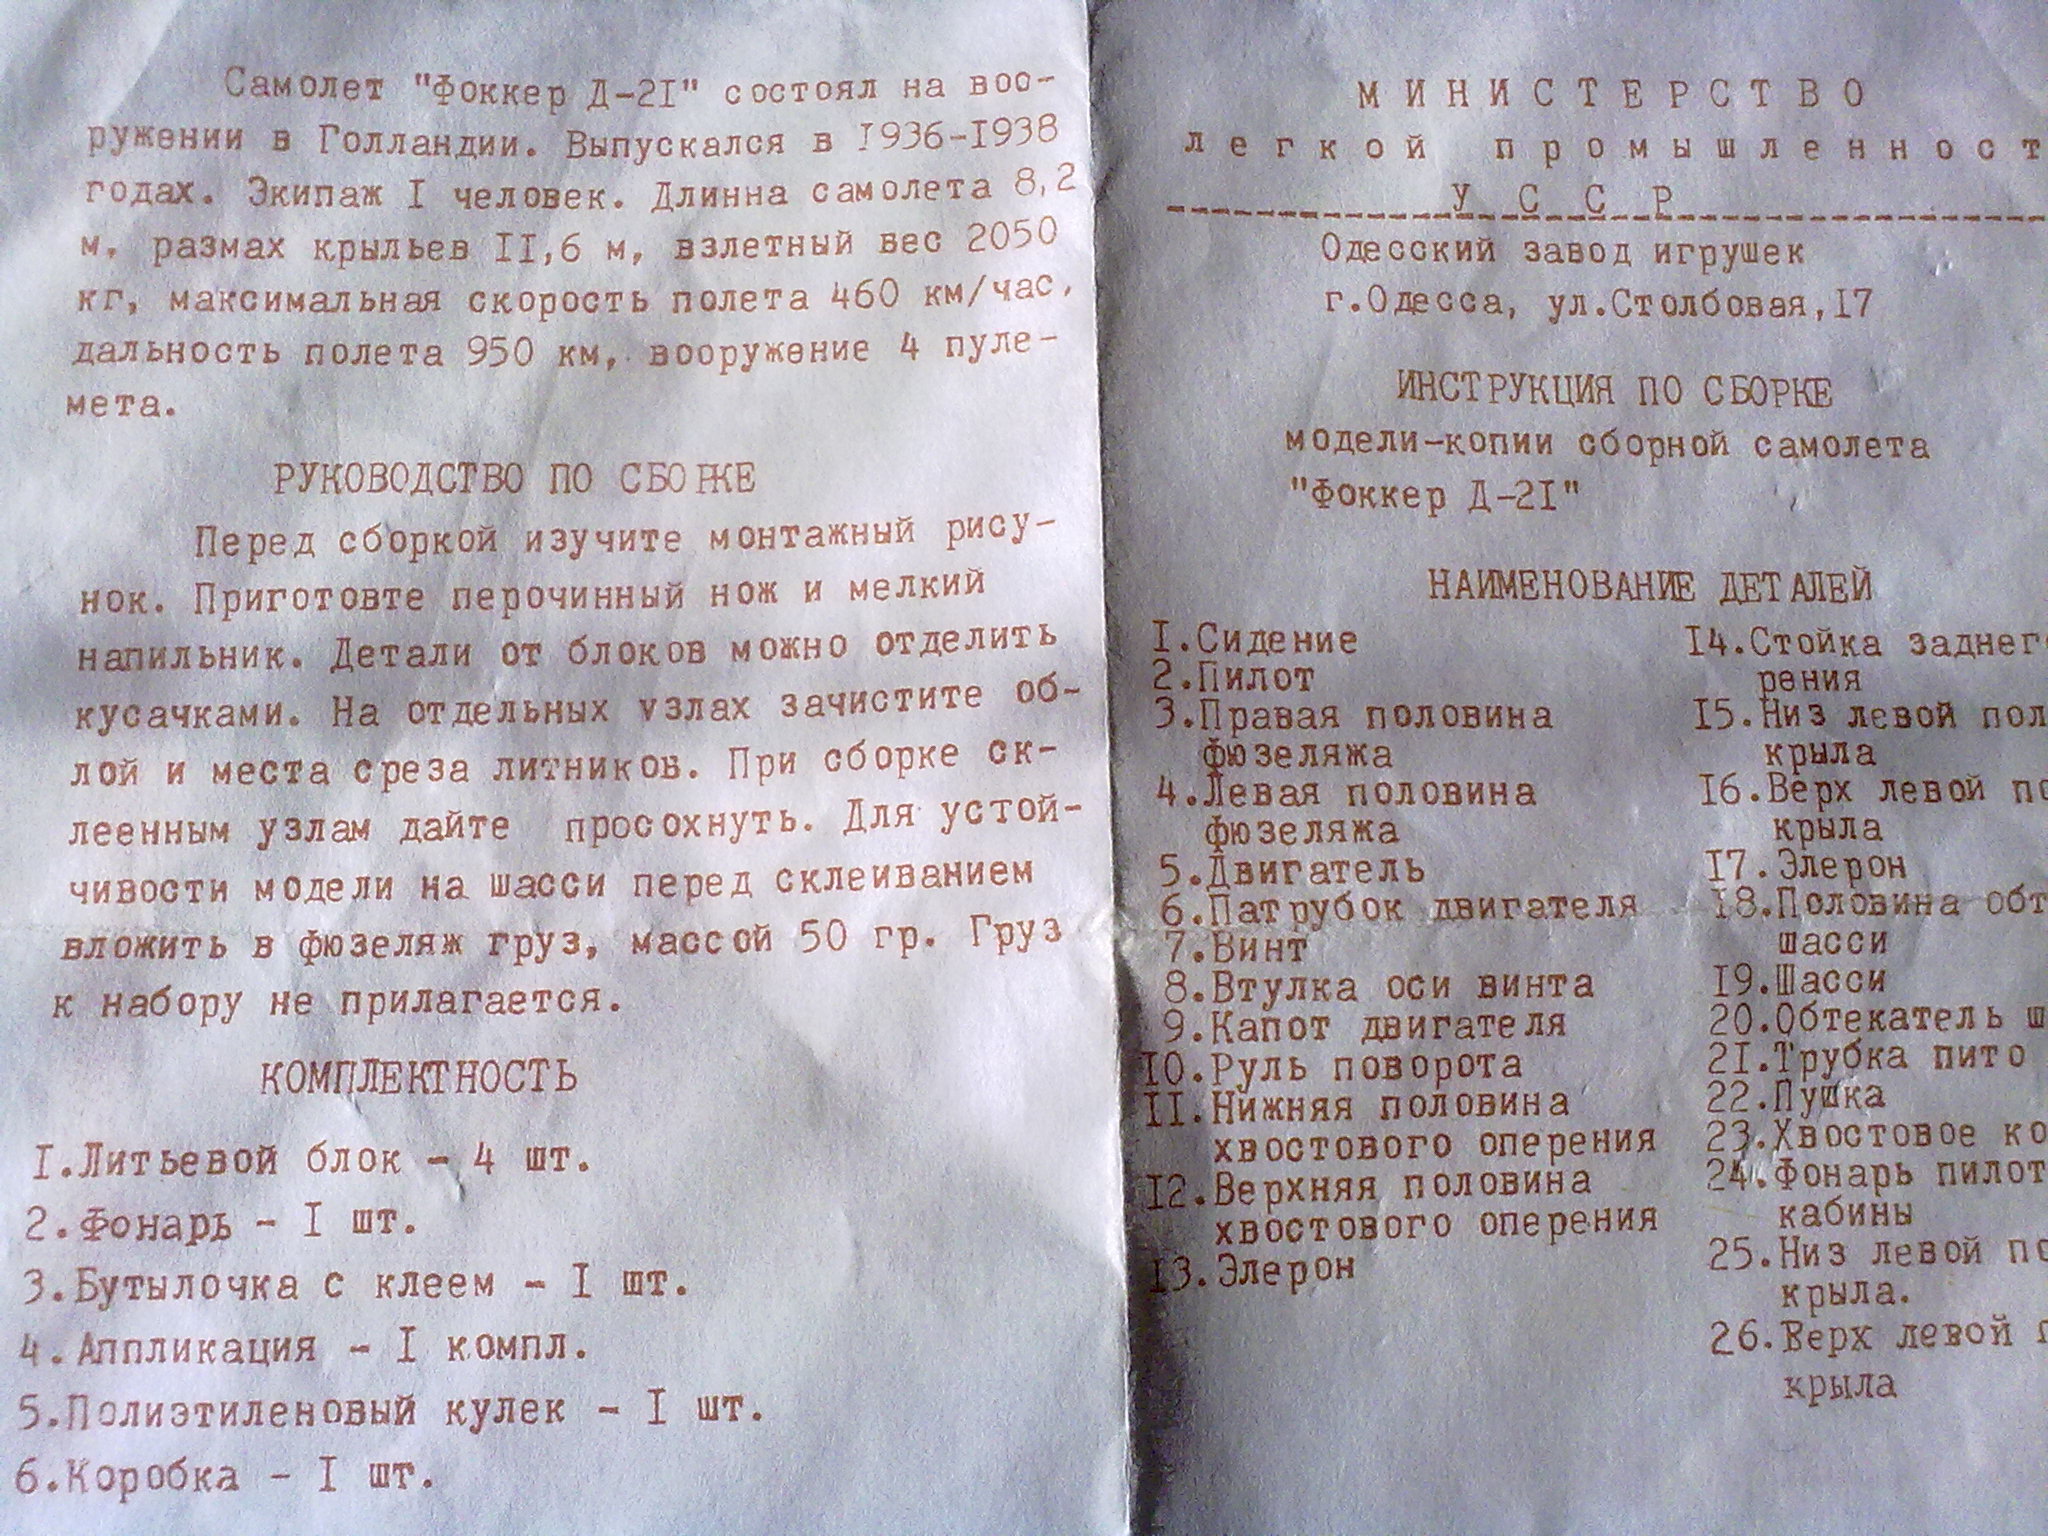 Самолет "Фоккер Д-2I" состоял на воо-
ружении в Голландии. Выпускался в I936-I938
годах. Экипаж I человек. Длинна самолета 8,2
м, размах крыльев II,6 м, взлетный вес 2050
кг, максимальная скорость полета 460 км/час,
дальность полета 950 км, вооружение 4 пуле-
мета.
РУКОВОДСТВО ПО СБОРКЕ
Перед сборкой изучите монтажный рису-
нок. Приготовте перочинный нож и мелкий
напильник. Детали от блоков можно отделить
кусачками. На отдельных узлах зачистите об-
лой и места среза литников. При сборке ск-
леенным узлам дайте просохнуть. Для устой-
чивости модели на шасси перед склеиванием
вложить в фюзеляж груз, массой 50 гр. Груз
к набору не прилагается.
КОМПЛЕКТНОСТЬ
I.Литьевой блок - 4 шт.
2.Фонарь - I шт.
3.Бутылочка с клеем - I шт.
4.Аппликация - I компл.
5.Полиэтиленовый кулек - I шт.
6.Коробка - I шт.
МИНИСТЕРСТВО
легкой промышленност
УССР
Одесский завод игрушек
г.Одесса, ул.Столбовая,I7
ИНСТРУКЦИЯ ПО СБОРКЕ
модели-копии сборной самолета
"Фоккер Д-2I"
НАИМЕНОВАНИЕ ДЕТАЛЕЙ
I.Сидение
2.Пилот
3.Правая половина
фюзеляжа
4.Левая половина
фюзеляжа
5.Двигатель
6.Патрубок двигателя
7.Винт
8.Втулка оси винта
9.Капот двигателя
I0.Руль поворота
II.Нижняя половина
хвостового оперения
I2.Верхняя половина
хвостового оперения
I3.Элерон
I4.Стойка заднег
рения
I5.Низ левой пол
крыла
I6.Верх левой по
крыла
I7.Элерон
I8.Половина обт
шасси
I9.Шасси
20.Обтекатель ш
2I.Трубка пито
22.Пушка
23.Хвостовое ко
24.Фонарь пилот
кабины
25.Низ левой по
крыла.
26.Верх левой п
крыла